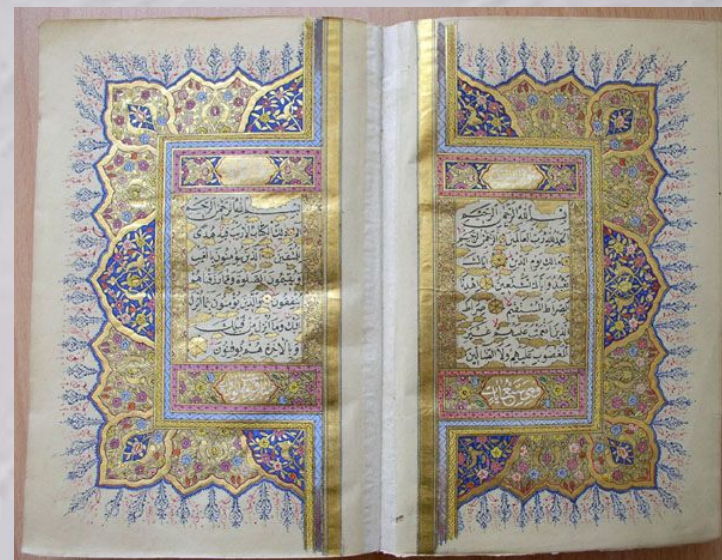 بسم الله الرحمن الرحيم
الحمد لله رب العالمين الرحمن الرحيم
مالك يوم الدين اياك
نعبد واياك نستعين اهدنا
الصراط المستقيم صراط
الذين انعمت عليهم غير
المغضوب عليهم ولا الضالين
بسم الله الرحمن الرحيم
الم ذلك الكتاب لا ريب فيه هدى
للمتقين الذين يؤمنون بالغيب
ويقيمون الصلوة ومما رزقناهم
ينفقون والذين يؤمنون بما انزل
اليك وما انزل من قبلك
وبالآخرة هم يوقنون